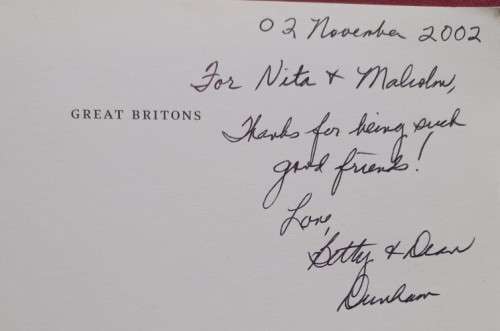 02 November 2002
For Nita & Malcolm,
GREAT BRITONS
Thanks for being such
good friends!
Love,
Betty & Dean
Dunham